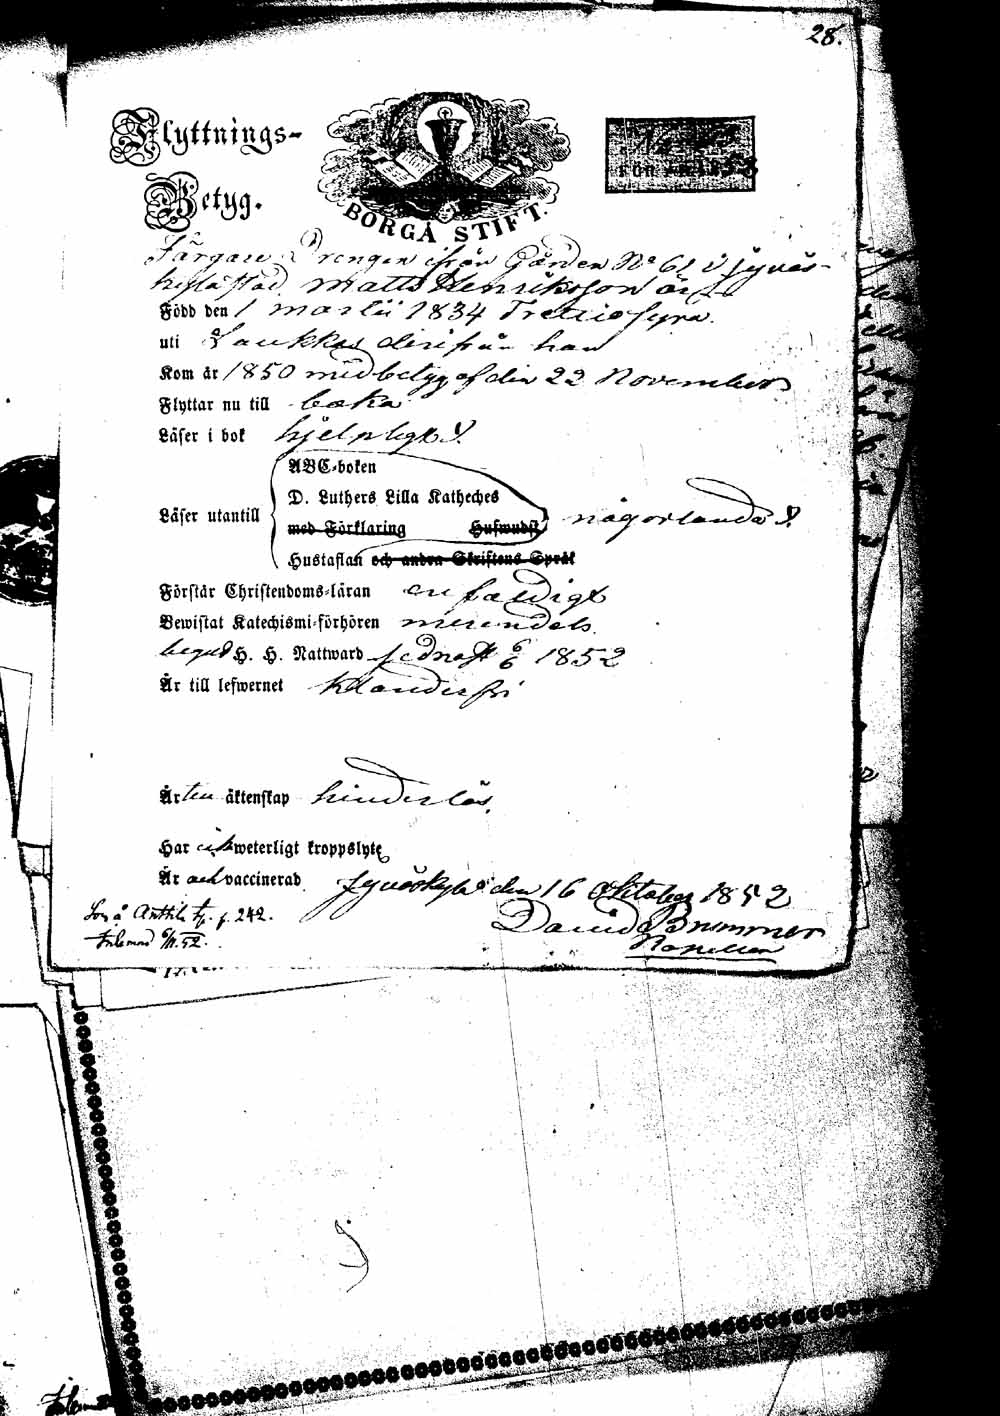 28.
Flyttnings-
Betyg.
BORGÅ STIFT.
No
FÖR
58
Färgare Drengen ifrån Gården No 61 i Jyväs-
kylä stad Matts Henriksson är
Född den 1 Martii 1834 Trettiofyra.
uti Laukkas derifrån han
Kom år 1850 med betyg af den 22 November
Flyttar nu till baka
Läser i bok hjelpligt
Läser utantill
ABC-boken
D. Luthers Lilla Katheches
med Förklaring Huswudst
Hustaflan och andra Skriftens Språk
någorlunda
Förstår Christendoms-läran enfaldigt
Bewistat Katechismi-förhören merendels
begått H. H. Nattward sednast 6/6 1852
Är till lefwernet klanderfri
Är till äktenskap hinderlös.
Har ej weterligt kroppslyte
Är och vaccinerad
Jyväskylä den 16 Oktober 1852
David Brummer
Kapellan
Anttila p. 242.
6/11 52.